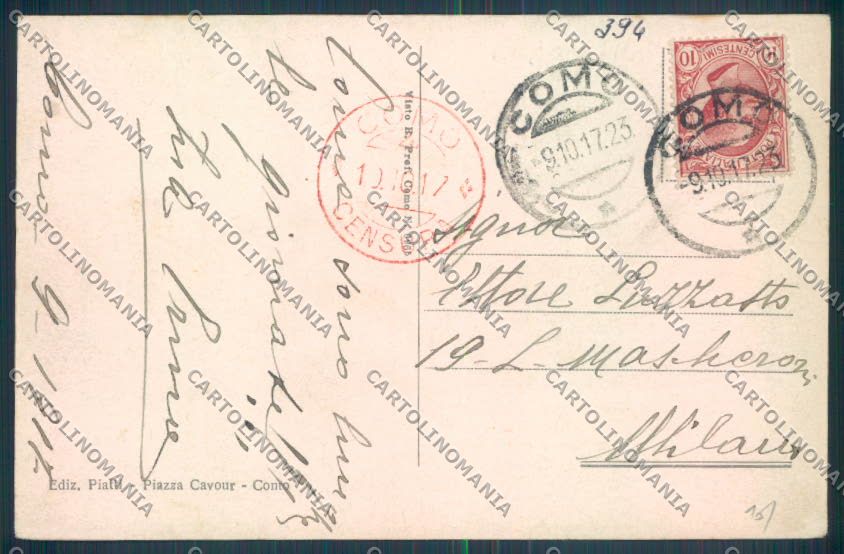 394
COMO
9.10.17.23
COMO
-9.10.17.23
10
CENTESIMI
COMO
10.10.17
CENSURA
Visto R. Pref. Como N.
Signor
Ettore Luzzatto
19-L- Mascheroni
Milano
Come sono lunghe
le giornate!!
Como - 9-
Ediz. Piatti - Piazza Cavour - Como
CARTOLINOMANIA